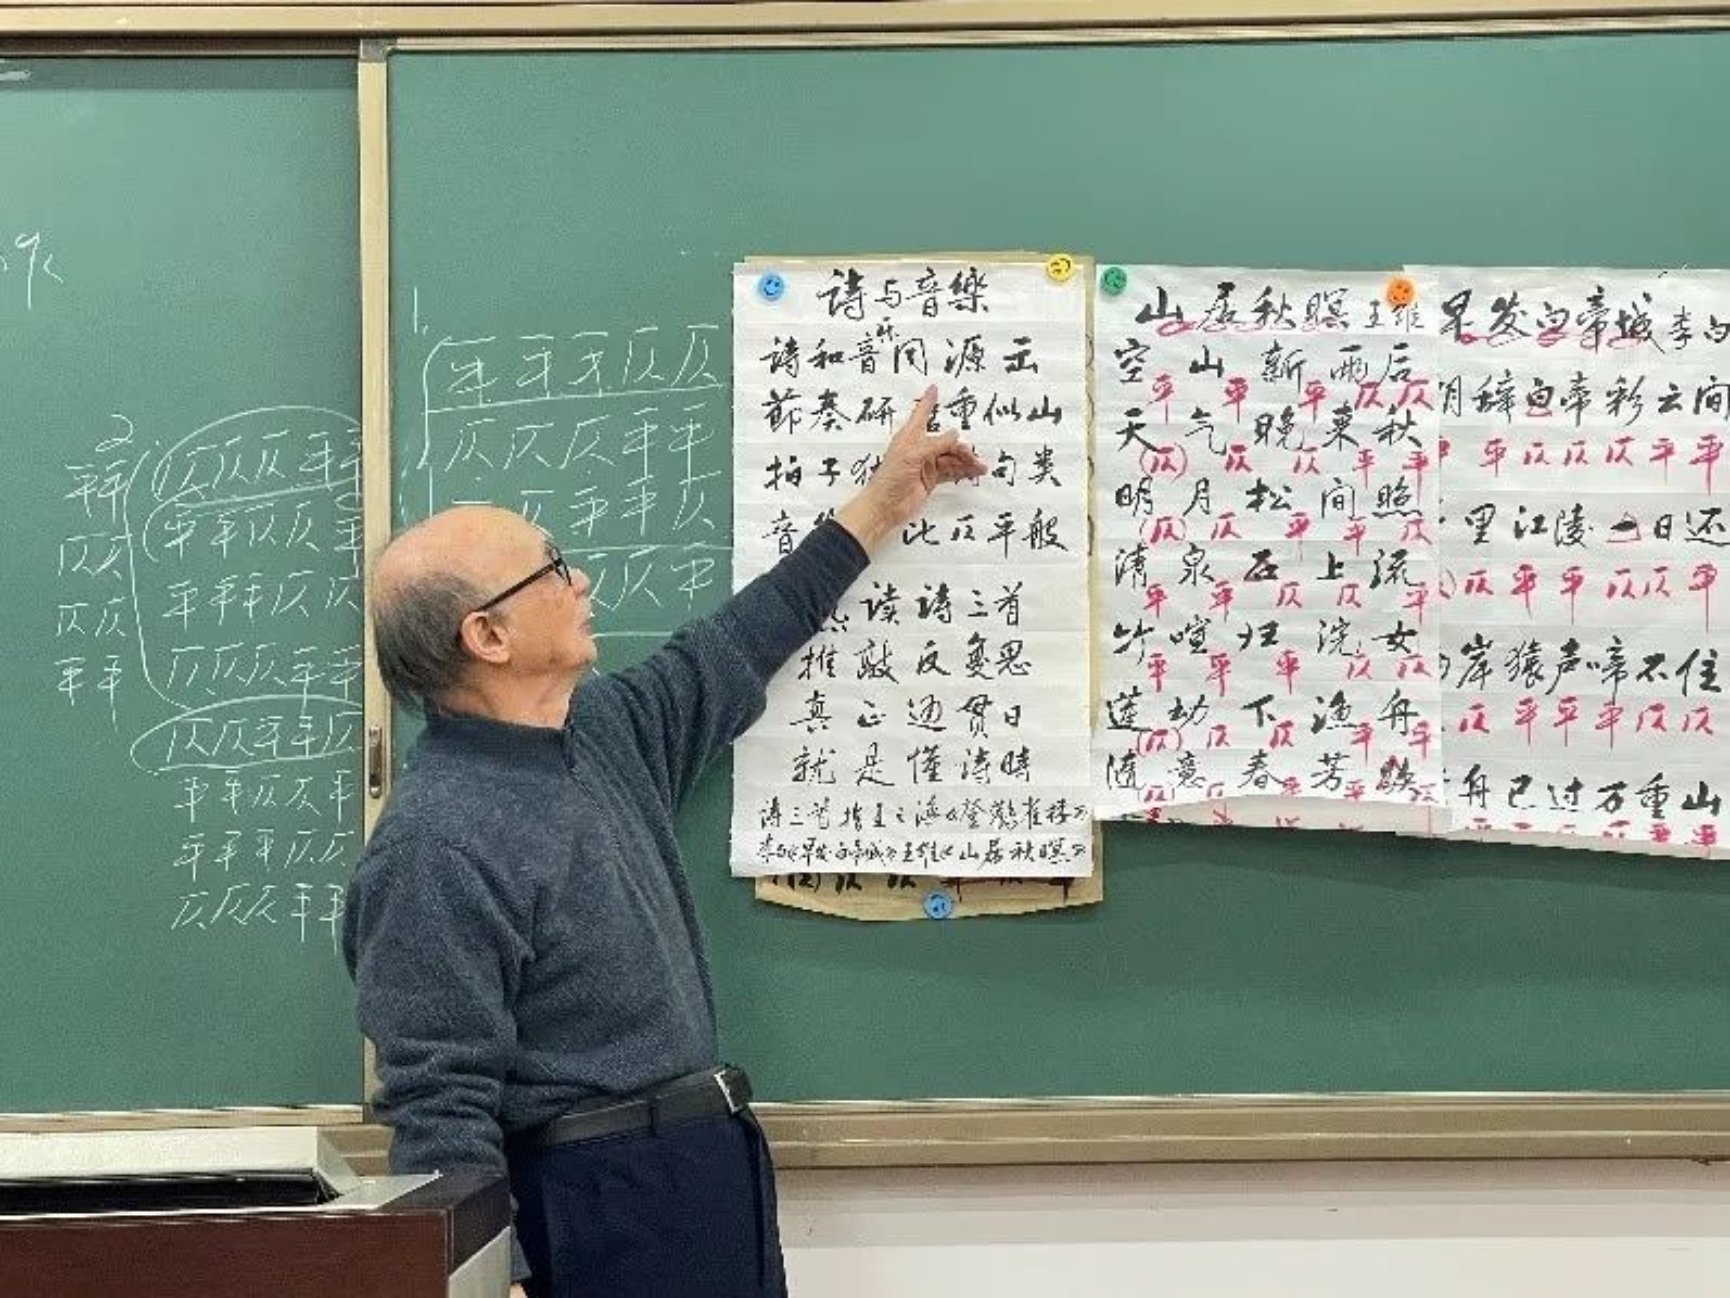 平平
仄仄
仄仄
平平
2.
仄仄仄平平
平平仄仄平
平平平仄仄
仄仄仄平平
仄仄平平仄
平平仄仄平
平平平仄仄
仄仄仄平平
1.
平平平仄仄
仄仄仄平平
仄平平仄
仄仄平
詩与音樂
詩和音乐同源出
節奏研 重似山
拍子 句类
音 比仄平般
读詩三首
推敲反复思
真正通贯日
就是懂詩時
詩三首指王之涣《登鸛雀楼》
李白《早发白帝城》王维《山居秋暝》
山居秋暝 王维
空山新雨后
平平平仄仄
天气晚来秋
(仄)仄仄平平
明月松间照
(仄)仄平平仄
清泉石上流
平平仄仄平
竹喧归浣女
平平平仄仄
莲动下渔舟
(仄)仄仄平平
随意春芳歇
(仄)仄平平仄
早发白帝城 李白
辞白帝彩云间
平仄仄仄平平
里江陵一日还
仄平平仄仄平
岸猿声啼不住
仄平平平仄仄
舟已过万重山